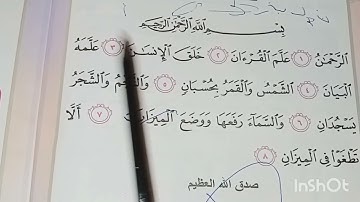 بِسْمِ اللَّهِ الرَّحْمَٰنِ الرَّحِيمِ
الرَّحْمَٰنُ ١ عَلَّمَ الْقُرْءَانَ ٢ خَلَقَ الْإِنسَٰنَ ٣ عَلَّمَهُ
الْبَيَانَ ٤ الشَّمْسُ وَالْقَمَرُ بِحُسْبَانٍ ٥ وَالنَّجْمُ وَالشَّجَرُ
يَسْجُدَانِ ٦ وَالسَّمَآءَ رَفَعَهَا وَوَضَعَ الْمِيزَانَ ٧ أَلَّا
تَطْغَوْا فِي الْمِيزَانِ ٨
صدق الله العظيم
InShot